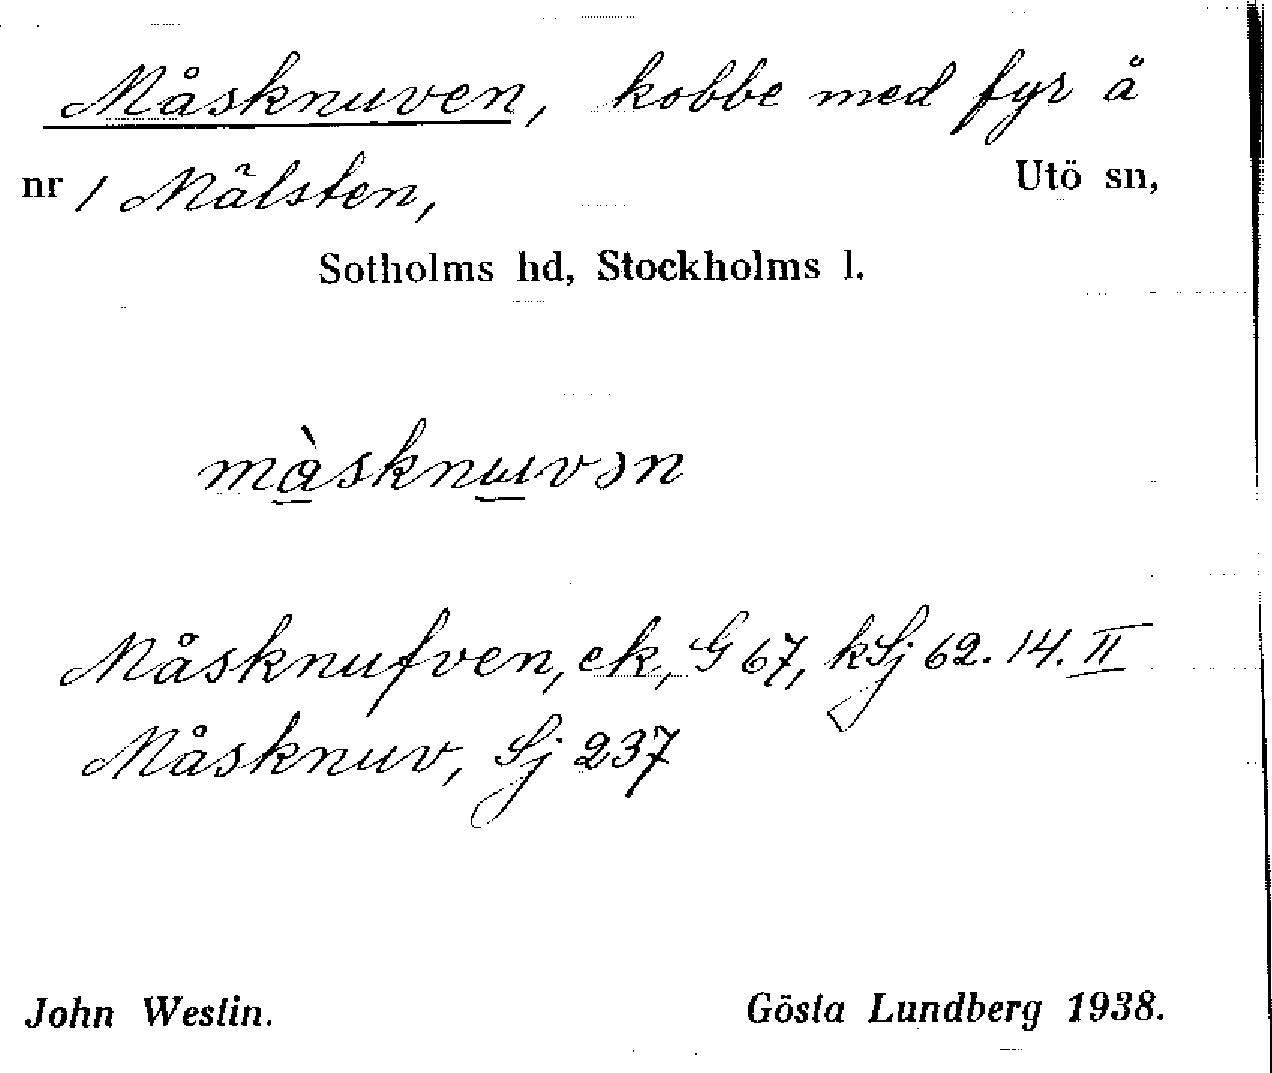 Måsknuven, kobbe med fyr å
nr 1 Mälsten, Utö sn,
Sotholms hd, Stockholms l.
màsknɯvən
Måsknufven, ek, G 67, kSj 62. 14. II
Måsknuv, Sj 237
John Westin. Gösta Lundberg 1938.